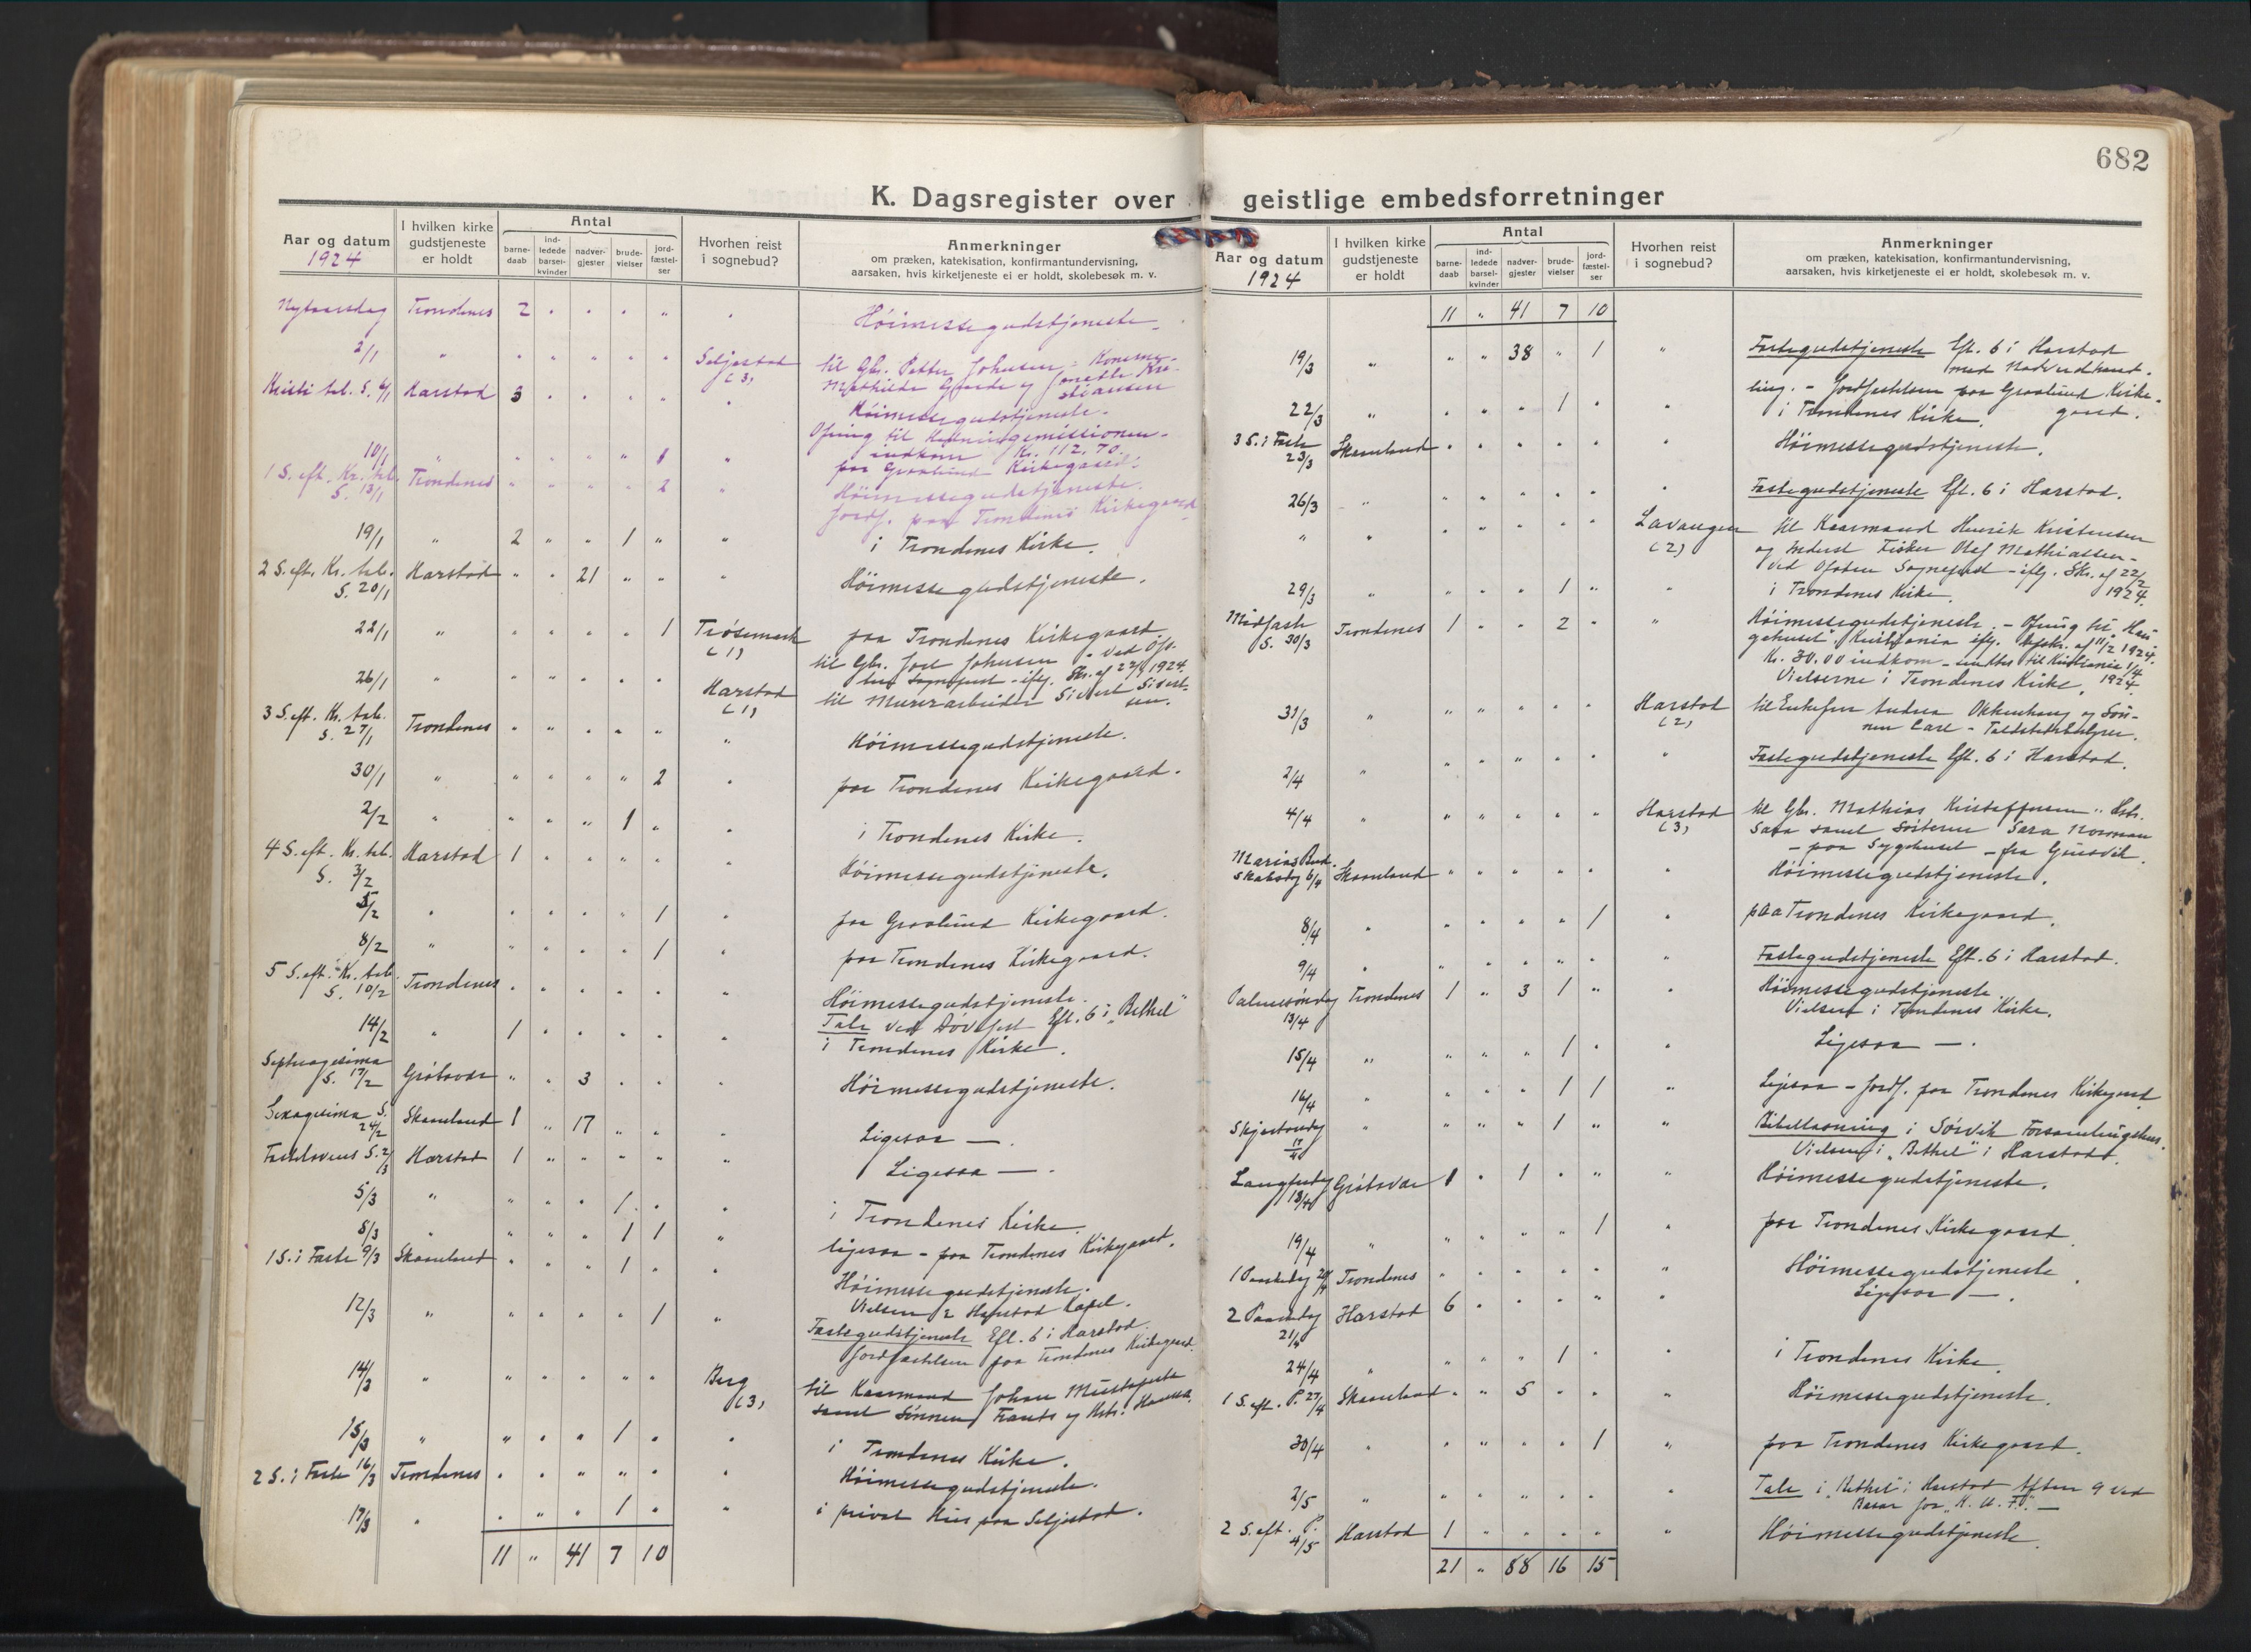 682
K. Dagsregister over geistlige embedsforretninger
Aar og datum
1924
I hvilken kirke
gudstjeneste
er holdt
Antal
barne-
daab
ind-
ledede
barsel-
kvinder
nadver-
gjester
brude-
vielser
jord-
fæstel-
ser
Hvorhen reist
i sognebud?
Anmerkninger
om præken, katekisation, konfirmantundervisning,
aarsaken, hvis kirketjeneste ei er holdt, skolebesøk m. v.
Nytaarsdag Trondenes 2 " " " " " Höimessegudstjeneste.
2/1 " " " " " " Seljestad (3) til Gbr. Petter Johnsen
Mathilde
Kristi aab. S. 6/1 Harstad 3 " " " " " Höimessegudstjeneste.
Ofring til
indkom Kr. 112.70.
10/1 " " " " " 1 " paa Graalund Kirkegaard.
1 S. eft. Kr. aab. S. 13/1 Trondenes " " " " 2 " Höimessegudstjeneste.
Jordf. paa Trondenes Kirkegaard
19/1 " 2 " " 1 " " i Trondenes Kirke.
2 S. eft. Kr. aab. S. 20/1 Harstad " " 21 " " " Höimessegudstjeneste.
22/1 " " " " " 1 Trøsemark (1) paa Trondenes Kirkegaard
til Gbr. Johnsen - ved Ofo-
ten Sognepræst - iflg. Skr. af 22/2 1924.
26/1 " " " " " " Harstad (1) til Murerarbeider Sivert Sivert-
sen.
3 S. eft. Kr. aab. S. 27/1 Trondenes " " " " " " Höimessegudstjeneste.
30/1 " " " " " 2 " paa Trondenes Kirkegaard.
2/2 " " " " 1 " " i Trondenes Kirke.
4 S. eft. Kr. aab. S. 3/2 Harstad 1 " " " " " Höimessegudstjeneste.
5/2 " " " " " 1 " paa Graalund Kirkegaard.
8/2 " " " " " 1 " paa Trondenes Kirkegaard.
5 S. eft. Kr. aab. S. 10/2 Trondenes " " " " " " Höimessegudstjeneste.
Tale ved Døvefest Eft. 6 i "Bethel"
14/2 " 1 " " " " " i Trondenes Kirke.
Septuagesima S. 17/2 Grötavær " " 3 " " " Höimessegudstjeneste.
Sexagesima S. 24/2 Skaanland 1 " 17 " " " Ligesaa —.
Fastelavens S. 2/3 Harstad 1 " " " " " Ligesaa —.
5/3 " " " " 1 " " i Trondenes Kirke.
8/3 " " " " 1 1 " ligesaa - paa Trondenes Kirkegaard.
1 S. i Faste 9/3 Skaanland " " " 1 " " Höimessegudstjeneste.
Vielsen i Harstad Kapel.
12/3 " " " " " 1 " Fastegudstjeneste Eft. 6 i Harstad.
Jordfæstelsen paa Trondenes Kirkegaard.
14/3 " " " " " " Berg (3) til Kaarmand Johan
samt Sönnen Frants og Hstr.
15/3 " " " " 1 " " i Trondenes Kirke.
2 S. i Faste 16/3 Trondenes " " " " " " Höimessegudstjeneste.
17/3 " " " " 1 " " i privat Hus paa Seljestad.
11 " 41 7 10
Aar og datum
1924
I hvilken kirke
gudstjeneste
er holdt
Antal
barne-
daab
ind-
ledede
barsel-
kvinder
nadver-
gjester
brude-
vielser
jord-
fæstel-
ser
Hvorhen reist
i sognebud?
Anmerkninger
om præken, katekisation, konfirmantundervisning,
aarsaken, hvis kirketjeneste ei er holdt, skolebesøk m. v.
11 " 41 7 10
19/3 " " " 38 " 1 " Fastegudstjeneste Eft. 6 i Harstad
med Nadverdhand-
ling. - Jordfæstelsen paa Graalund Kirke-
gaard.
22/3 " " " " 1 " " i Trondenes Kirke.
3 S. i Faste 23/3 Skaanland " " " " " " Höimessegudstjeneste.
26/3 " " " " " " " Fastegudstjeneste Eft. 6 i Harstad.
" " " " " " " Lavangen (2) til Kaarmand Henrik Kristensen
og Inderst Fisker Olaf Mathiassen -
ved Ofoten Sognepræst - iflg. Skr. af 22/2
1924.
29/3 " " " " 1 " " i Trondenes Kirke.
Midfaste S. 30/3 Trondenes 1 " " 2 " " Höimessegudstjeneste. - Ofring til "Hau-
gehuset", Kristiania iflg. af 11/2 1924.
Kr. 30.00 indkom - sendtes til Kristiania 1/4
1924.
Vielserne i Trondenes Kirke.
31/3 " " " " " " Harstad (2) til Enkefru Andrea Okkenhaug og Søn-
nen Carl -
2/4 " " " " " " " Fastegudstjeneste Eft. 6 i Harstad.
4/4 " " " " " " Harstad (3) til Gbr. Mathias Kristoffersen, Hstr.
Sara samt Søsteren Sara Norman
- paa Sygehuset - fra
Marias Bud-
skabsdg 6/4 Skaanland " " " " " " Höimessegudstjeneste.
8/4 " " " " " 1 " paa Trondenes Kirkegaard.
9/4 " " " " " " " Fastegudstjeneste Eft. 6 i Harstad.
Palmesøndag 13/4 Trondenes 1 " 3 1 " " Höimessegudstjeneste.
Vielsen i Trondenes Kirke.
15/4 " " " " 1 " " Ligesaa —.
16/4 " " " " 1 1 " Ligesaa - Jordf. paa Trondenes Kirkegaard.
Skjærtorsdg 17/4 " " " " 1 " " Bibellæsning i Sørvik Forsamlingshus.
Vielsen i "Bethel" i Harstad.
Langfredg 18/4 Grötavær 1 " 1 " " " Höimessegudstjeneste.
19/4 " " " " " 1 " paa Trondenes Kirkegaard.
1 Paaskedag 20/4 Trondenes " " " " " " Höimessegudstjeneste.
2 Paaskedag 21/4 Harstad 6 " " " " " Ligesaa —.
24/4 " " " " 1 " " i Trondenes Kirke.
1 S. eft. P. 27/4 Skaanland " " 5 " " " Höimessegudstjeneste.
30/4 " " " " " 1 " paa Trondenes Kirkegaard.
2/5 " " " " " " " Tale i "Bethel" i Harstad Aften 9 ved
Basar for "K. U. F." —
2 S. eft. P. 4/5 Harstad 1 " " " " " Höimessegudstjeneste.
21 " 88 16 15